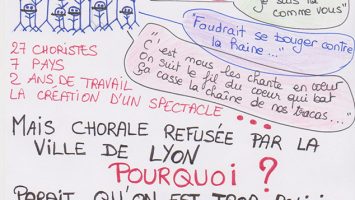 comme vous"
"Faudrait se bouger contre
la Haine..."
C'est nous les chante en cœur
On suit le fil du cœur qui bat
Ça casse la chaîne de nos tracas..."
27 CHORISTES
7 PAYS
2 ANS DE TRAVAIL
LA CRÉATION D'UN SPECTACLE ...
MAIS CHORALE REFUSÉE PAR LA
VILLE DE LYON
POURQUOI ?
PARAIT QU'ON EST TROP